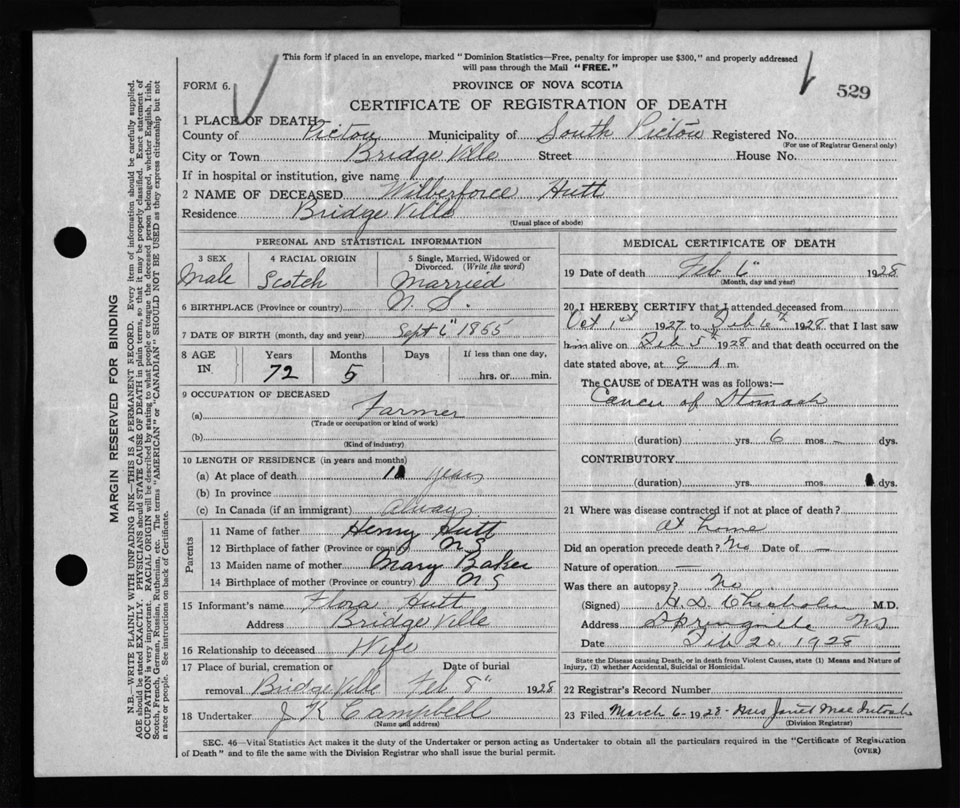 This form if placed in an envelope, marked "Dominion Statistics—Free, penalty for improper use $300," and properly addressed
will pass through the Mail "FREE."
FORM 6.
PROVINCE OF NOVA SCOTIA
529
CERTIFICATE OF REGISTRATION OF DEATH
1 PLACE OF DEATH
County of Pictou Municipality of South Pictou Registered No.
(For use of Registrar General only)
City or Town Bridge Ville Street House No.
If in hospital or institution, give name
2 NAME OF DECEASED Wilberforce Hutt
Residence Bridge Ville
(Usual place of abode)
PERSONAL AND STATISTICAL INFORMATION
3 SEX 4 RACIAL ORIGIN 5 Single, Married, Widowed or
Divorced. (Write the word)
Male Scotch Married
6 BIRTHPLACE (Province or country) N. S.
7 DATE OF BIRTH (month, day and year) Sept 6" 1855
8 AGE IN Years Months Days If less than one day,
72 5 hrs. or min.
9 OCCUPATION OF DECEASED
(a) Farmer
(Trade or occupation or kind of work)
(b)
(Kind of industry)
10 LENGTH OF RESIDENCE (in years and months)
(a) At place of death years
(b) In province
(c) In Canada (if an immigrant) always
Parents
11 Name of father Henry Hutt
12 Birthplace of father (Province or country) N S
13 Maiden name of mother Mary Baker
14 Birthplace of mother (Province or country) N S
15 Informant's name Flora Hutt
Address Bridge Ville
16 Relationship to deceased Wife
17 Place of burial, cremation or Date of burial
removal Bridge Ville Feb 8" 1928
18 Undertaker J K Campbell
(Name and address)
MEDICAL CERTIFICATE OF DEATH
19 Date of death Feb 6" 1928
(Month, day and year)
20 I HEREBY CERTIFY that I attended deceased from
Oct 1st 1927 to Feb 6th 1928 that I last saw
him alive on Feb 5th 1928 and that death occurred on the
date stated above, at 9 A m.
The CAUSE OF DEATH was as follows:—
Cancer of Stomach
(duration) yrs. 6 mos. – dys.
CONTRIBUTORY
(duration) yrs. mos. dys.
21 Where was disease contracted if not at place of death?
at home
Did an operation precede death? No Date of —
Nature of operation —
Was there an autopsy? No
(Signed) H. D. Chisholm M.D.
Address Springville NS
Date Feb 20, 1928
State the Disease causing Death, or in death from Violent Causes, state (1) Means and Nature of
Injury, (2) whether Accidental, Suicidal or Homicidal.
22 Registrar's Record Number
23 Filed March 6 - 1928 - Mrs Janet
(Division Registrar)
SEC. 46—Vital Statistics Act makes it the duty of the Undertaker or person acting as Undertaker to obtain all the particulars required in the "Certificate of Registration
of Death" and to file the same with the Division Registrar who shall issue the burial permit.
(OVER)
MARGIN RESERVED FOR BINDING
N.B.—WRITE PLAINLY WITH UNFADING INK—THIS IS A PERMANENT RECORD. Every item of information should be carefully supplied.
AGE should be stated EXACTLY. PHYSICIANS should STATE CAUSE OF DEATH in plain terms, so that it may be properly classified. Exact statement of
OCCUPATION is very important. RACIAL ORIGIN will be described by stating to what people or tongue the deceased person belonged, whether English, Irish,
Scotch, French, German, Russian, Ruthenian, etc. The terms "AMERICAN" or "CANADIAN" SHOULD NOT BE USED as they express citizenship but not
a race or people. See instructions on back of Certificate.